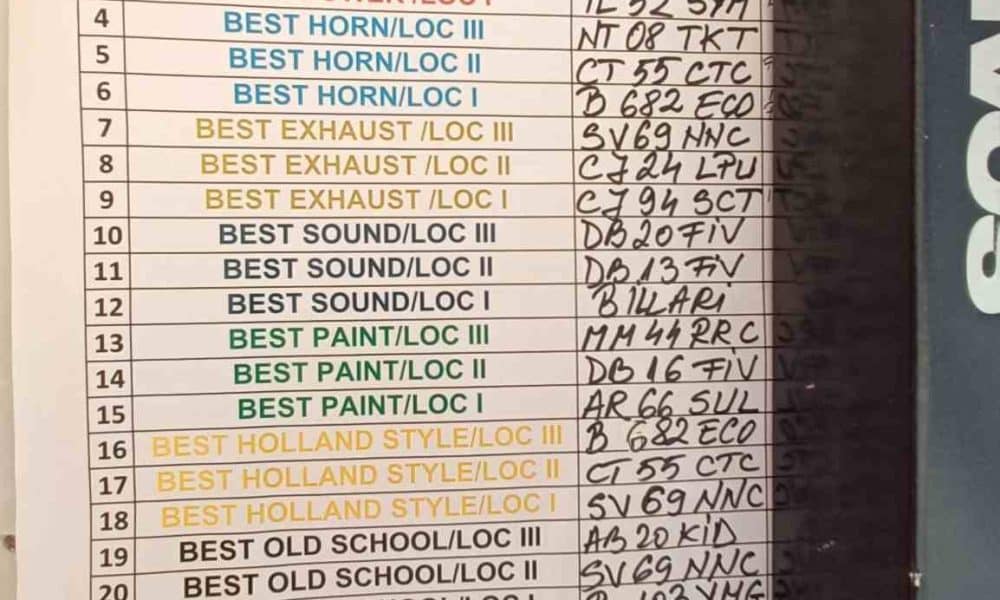 4 BEST HORN/LOC III NT 08 TKT
5 BEST HORN/LOC II CT 55 CTC
6 BEST HORN/LOC I B 682 ECO
7 BEST EXHAUST /LOC III SV 69 NNC
8 BEST EXHAUST /LOC II CJ 24 LPU
9 BEST EXHAUST /LOC I CJ 94 SCT
10 BEST SOUND/LOC III DB 20 FIV
11 BEST SOUND/LOC II DB 13 FIV
12 BEST SOUND/LOC I BILLARI
13 BEST PAINT/LOC III MM 44 RRC
14 BEST PAINT/LOC II DB 16 FIV
15 BEST PAINT/LOC I AR 66 SUL
16 BEST HOLLAND STYLE/LOC III B 682 ECO
17 BEST HOLLAND STYLE/LOC II CT 55 CTC
18 BEST HOLLAND STYLE/LOC I SV 69 NNC
19 BEST OLD SCHOOL/LOC III AB 20 KID
20 BEST OLD SCHOOL/LOC II SV 69 NNC